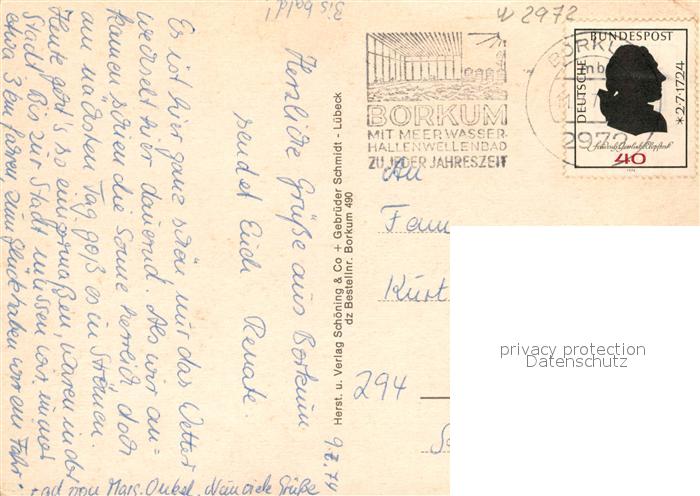 Bis bald!
W 2972
Herzliche Grüße aus Borkum
sendet Euch Renate.
Es ist hier ganz schön, nur das Wetter
wechselt hier dauernd. Als wir an-
kamen schien die Sonne herrlich doch
am nächsten Tag goß es in Strömen.
Heute geht's so einigermaßen, waren in der
Stadt. Bis zur Stadt müssen wir immer
etwa 3 km fahren zum Glück haben wir ein Fahr-
rad von Onkel. Nun viele Grüße
9.7.74
Herst. u. Verlag Schöning & Co + Gebrüder Schmidt - Lübeck
dz Bestellnr. Borkum 490
BORKUM
MIT MEERWASSER-
HALLENWELLENBAD
ZU JEDER JAHRESZEIT
2972
DEUTSCHE BUNDESPOST
* 2.7.1724
Friedrich Gottlieb Klopstock
40
An
Fam
Kurt
294
privacy protection
Datenschutz